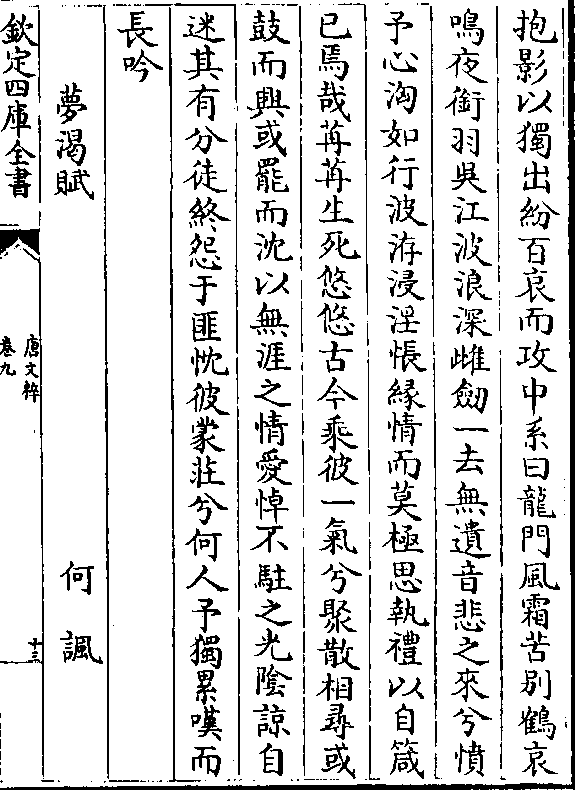 抱影以獨出紛百哀而攻中系曰龍門風霜苦別鶴哀
鳴夜銜羽吳江波浪深雌劒一去無遺音悲之來兮憤
予心洶如行波洊浸淫悵緣情而莫極思執禮以自箴
已焉哉苒苒生死悠悠古今乘彼一氣兮聚散相尋或
鼓而興或罷而沈以無涯之情愛悼不駐之光陰諒自
迷其有分徒終怨于匪忱彼蒙莊兮何人予獨累嘆而
長吟
夢渴賦 何諷
欽定四庫全書
唐文粹
卷九
十三